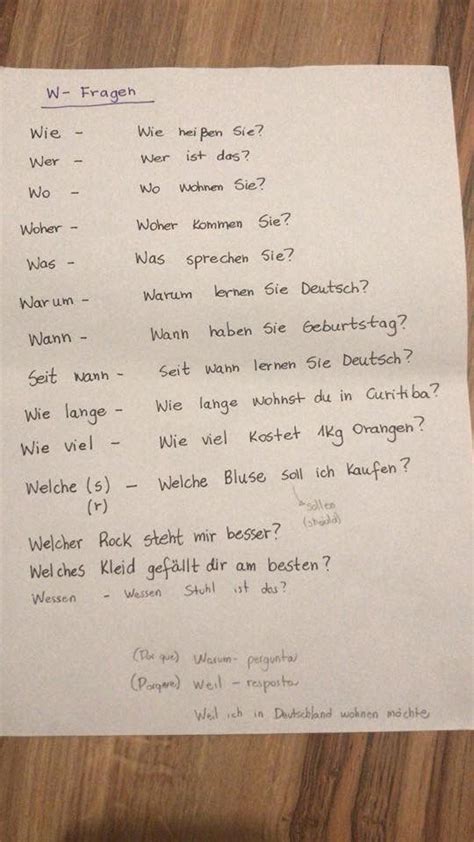 W- Fragen
Wie - Wie heißen Sie?
Wer - Wer ist das?
Wo - Wo wohnen Sie?
Woher - Woher kommen Sie?
Was - Was sprechen Sie?
Warum - Warum lernen Sie Deutsch?
Wann - Wann haben Sie Geburtstag?
Seit wann - Seit wann lernen Sie Deutsch?
Wie lange - Wie lange wohnst du in Curitiba?
Wie viel - Wie viel Kostet 1kg Orangen?
Welche (s) - Welche Bluse soll ich Kaufen?
(r)
sollen
(should)
Welcher Rock steht mir besser?
Welches Kleid gefällt dir am besten?
Wessen - Wessen Stuhl ist das?
(Por que) Warum - pergunta
(Porque) Weil - resposta
Weil ich in Deutschland wohnen möchte